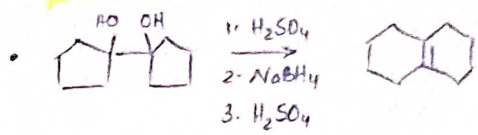 HO OH 1. H₂SO₄
2. NaBH₄
3. H₂SO₄